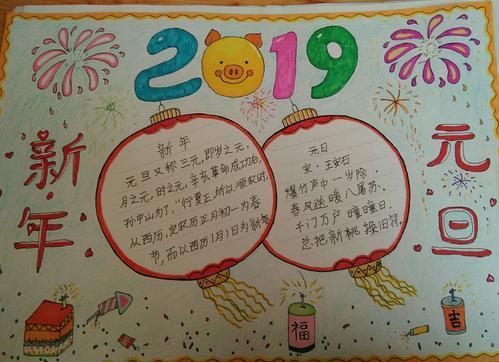 2019
新·年
元旦
新年
元旦又称三元,即岁之元,
月之元,时之元,辛亥革命成功后,
孙中山为了,"行夏正,所以顺农时,
从西历,定农历正月初一为春
节,而以西历1月1日为新年
元日
宋·王安石
爆竹声中一岁除
春风送暖入屠苏.
千门万户曈曈日,
总把新桃换旧符.
福
吉